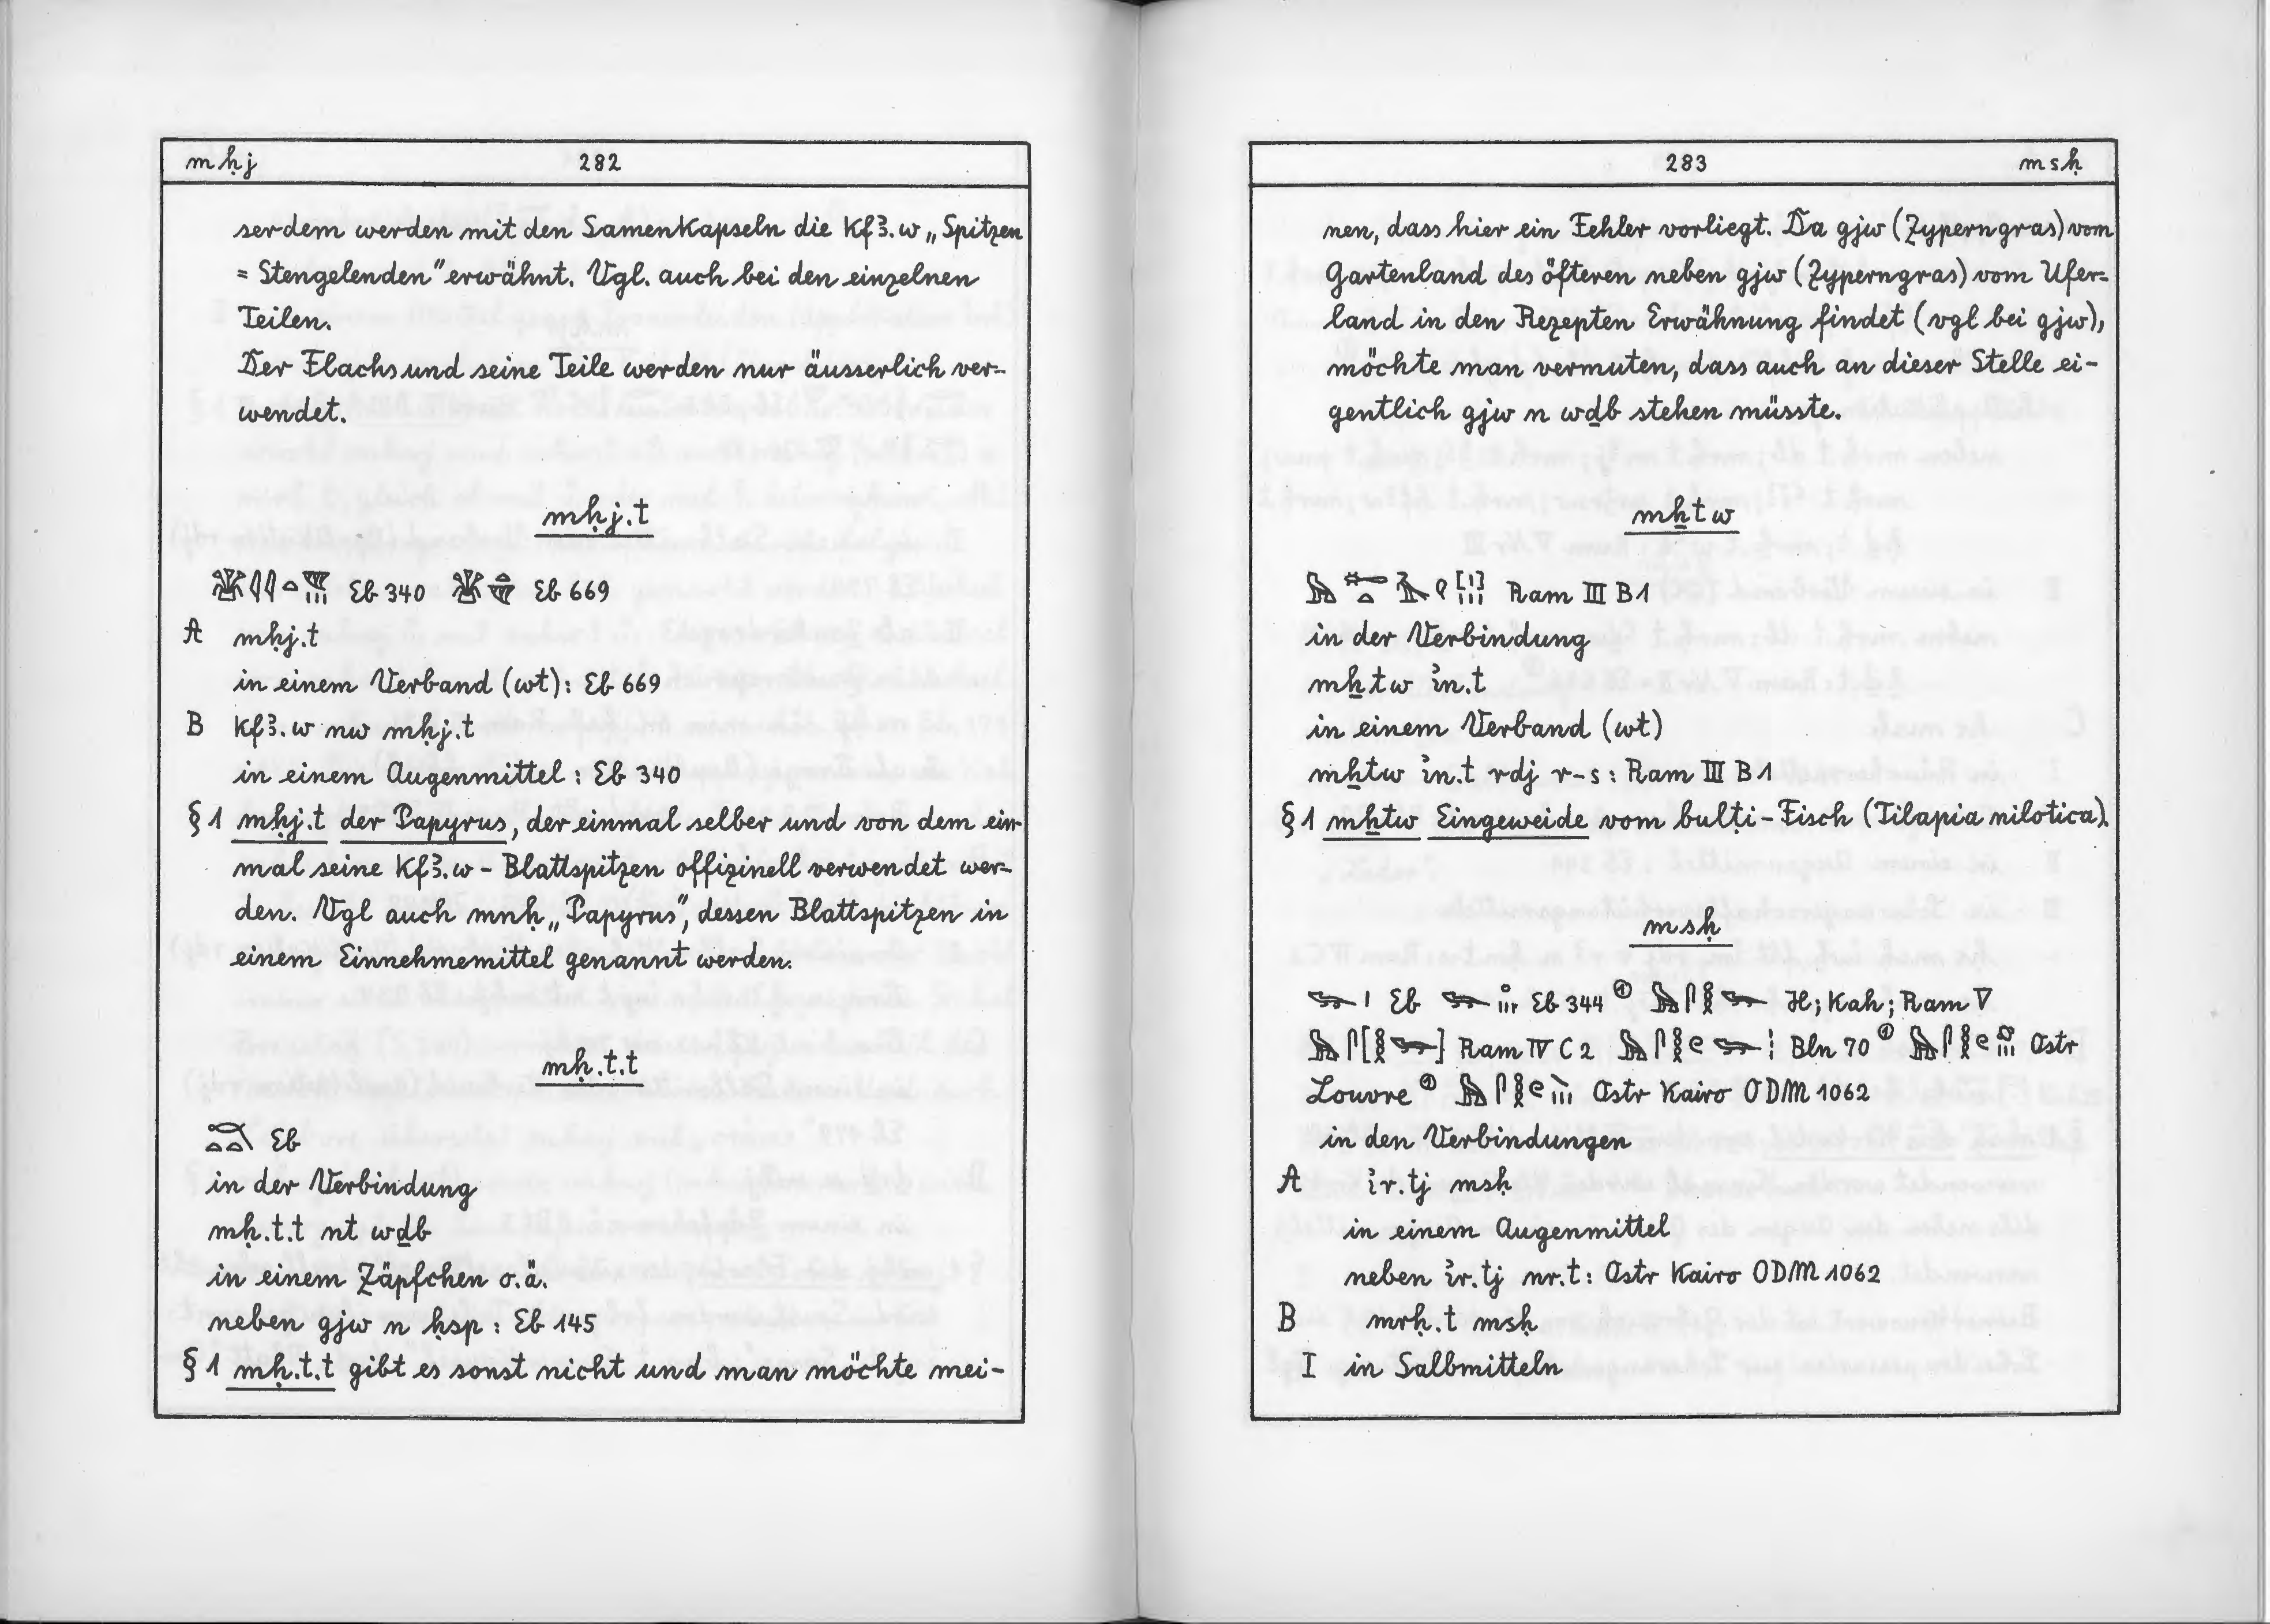 mḥj 282
serdem werden mit den Samenkapseln die kfꜣ.w „Spitzen
= Stengelenden" erwähnt. Vgl. auch bei den einzelnen
Teilen.
Der Flachs und seine Teile werden nur äusserlich ver-
wendet.
mḥj.t
Eb 340 Eb 669
A mḥj.t
in einem Verband (wt): Eb 669
B kfꜣ.w nw mḥj.t
in einem Augenmittel: Eb 340
§ 1 mḥj.t der Papyrus, der einmal selber und von dem ein-
mal seine kfꜣ.w - Blattspitzen offizinell verwendet wer-
den. Vgl auch mnḥ „Papyrus", dessen Blattspitzen in
einem Einnehmemittel genannt werden.
mḥ.t.t
Eb
in der Verbindung
mḥ.t.t nt wdb
in einem Zäpfchen o.ä.
neben gjw n ḥsp: Eb 145
§ 1 mḥ.t.t gibt es sonst nicht und man möchte mei-
283 msḥ
nen, dass hier ein Fehler vorliegt. Da gjw (Zyperngras) vom
Gartenland des öfteren neben gjw (Zyperngras) vom Ufer-
land in den Rezepten Erwähnung findet (vgl bei gjw),
möchte man vermuten, dass auch an dieser Stelle ei-
gentlich gjw n wḏb stehen müsste.
mẖtw
Ram III B1
in der Verbindung
mẖtw i҆n.t
in einem Verband (wt)
mẖtw i҆n.t rdj r-s: Ram III B1
§ 1 mẖtw Eingeweide vom bulṭi-Fisch (Tilapia nilotica).
msḥ
Eb Eb 344 ① H; Kah; Ram V
Ram IV C 2 Bln 70 ① Ostr
Louvre ① Ostr Kairo ODM 1062
in den Verbindungen
A i҆r.tj msḥ
in einem Augenmittel
neben i҆r.tj nr.t: Ostr Kairo ODM 1062
B mrḥ.t msḥ
I in Salbmitteln